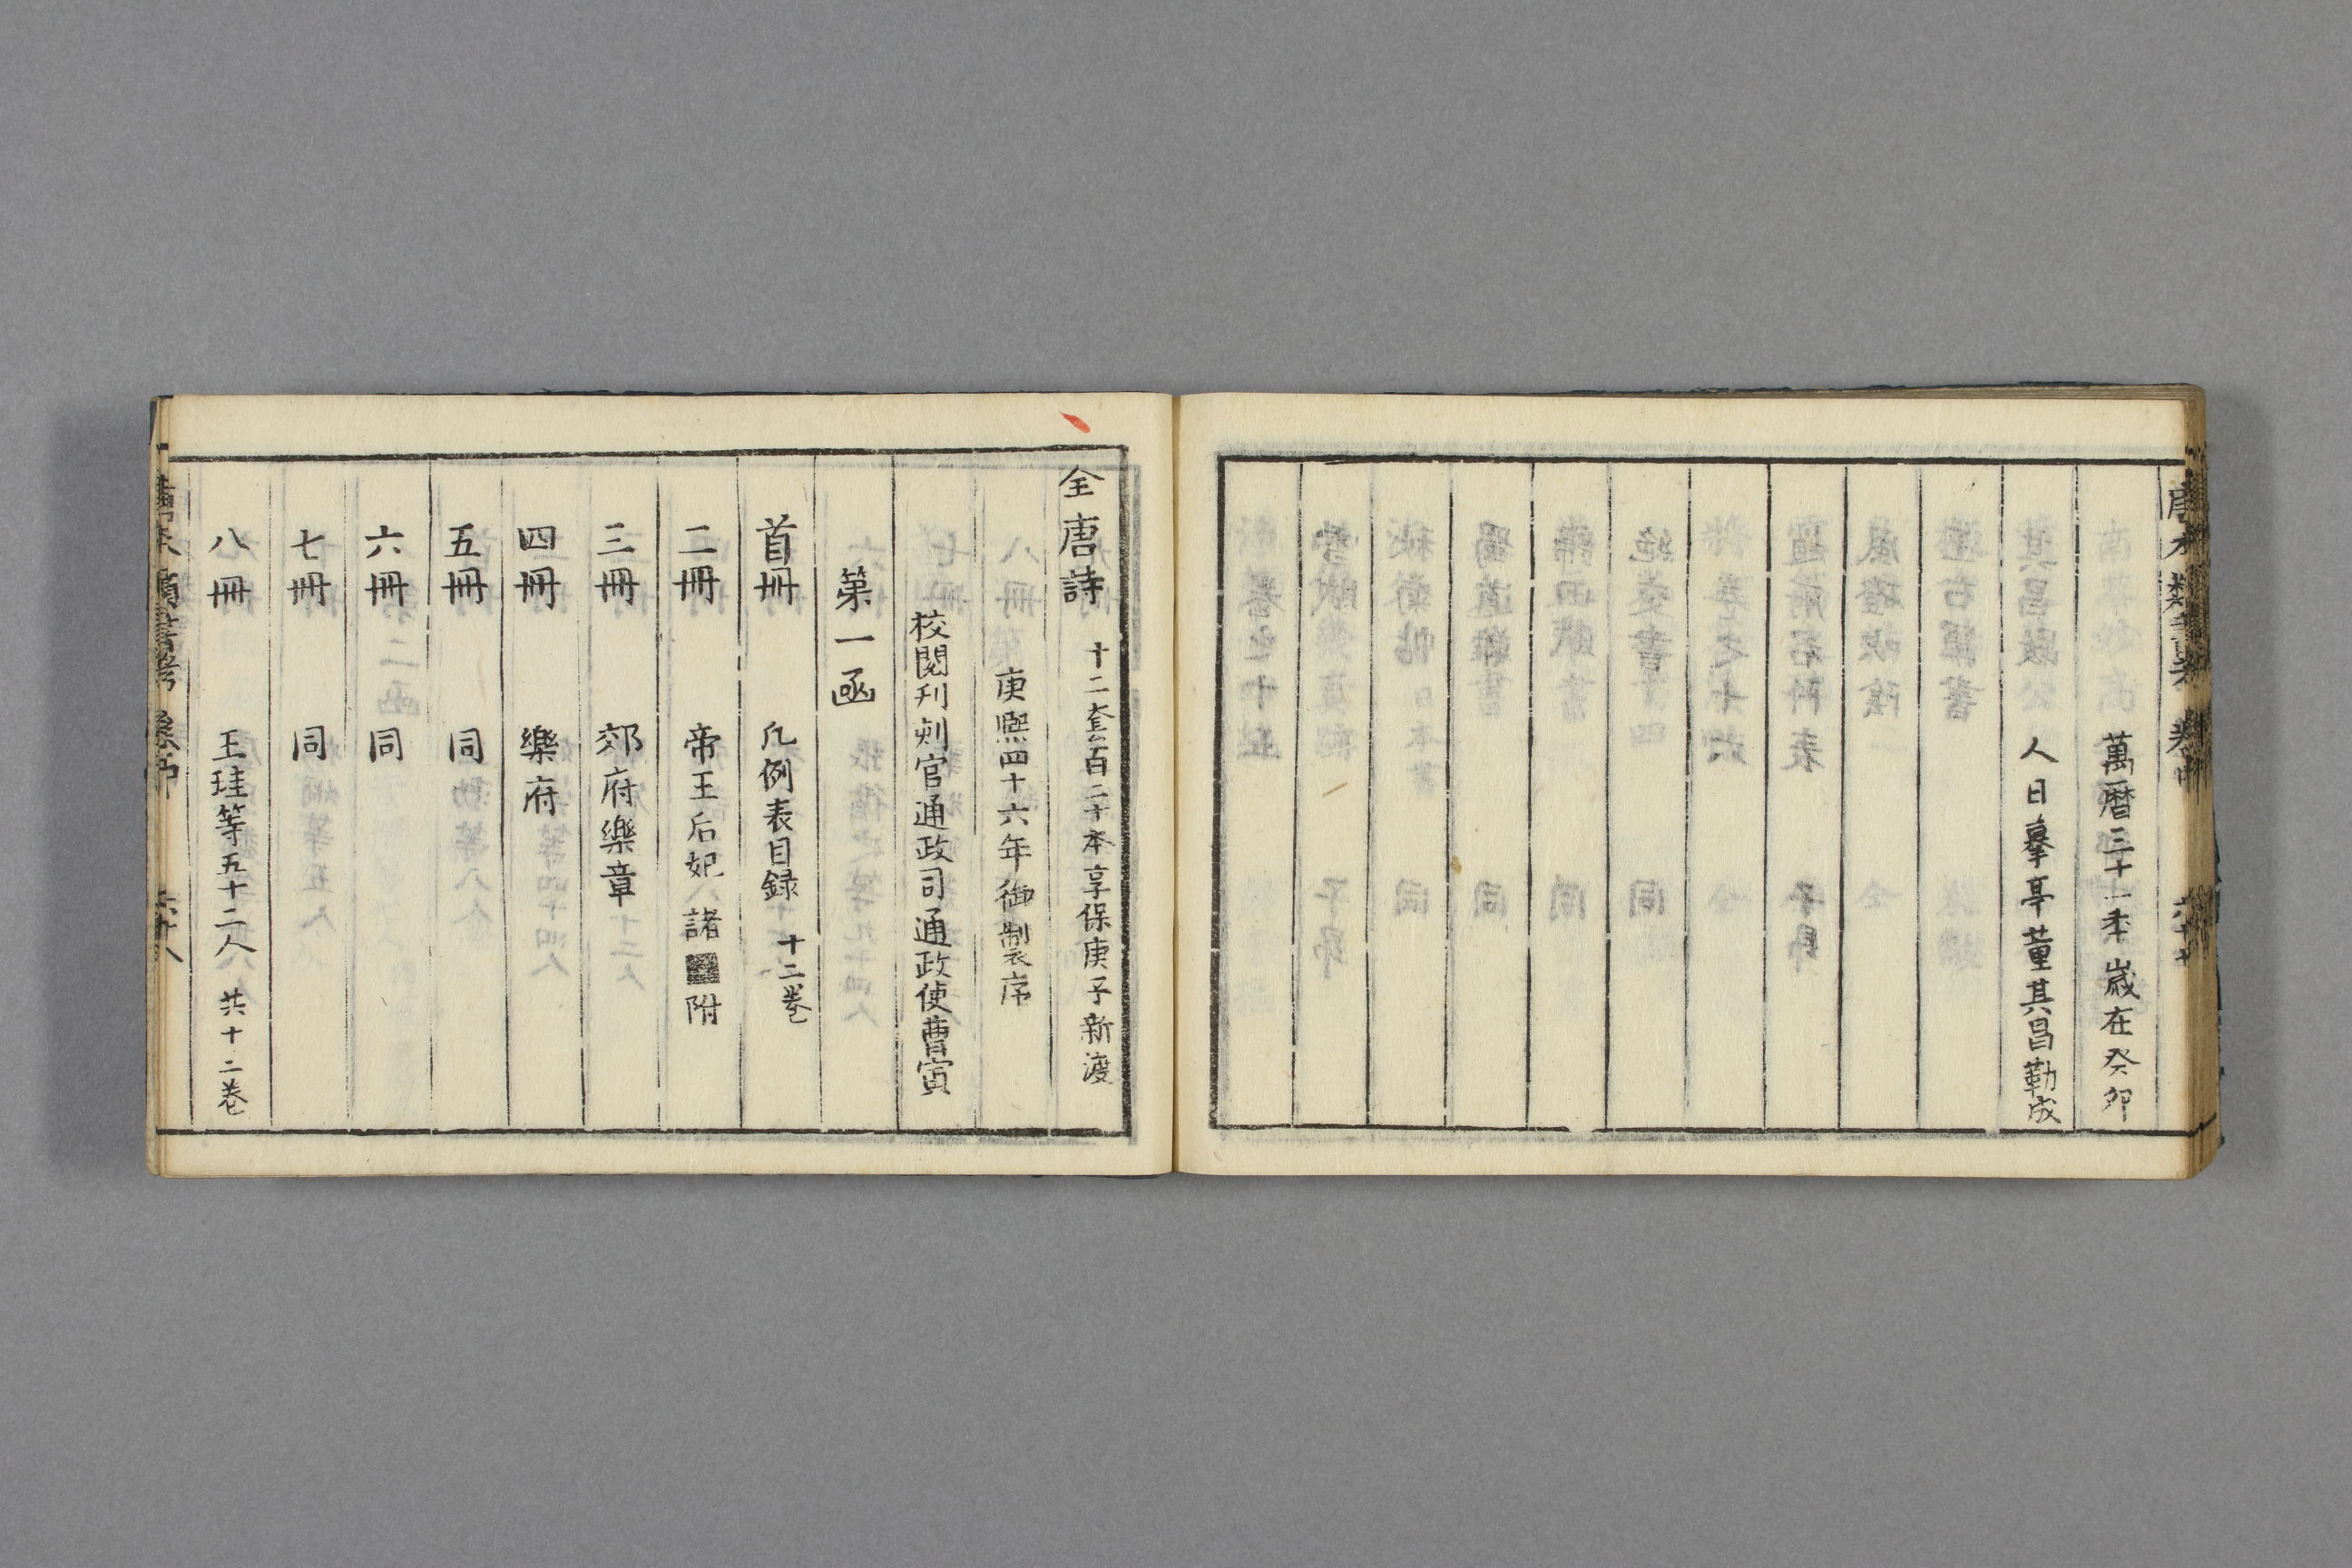 唐本類書考 卷中
萬暦三十一季歲在癸卯
人日摹亭董其昌勒成
全唐詩 十二套百二十本享保庚子新渡
庚熈四十六年御製序
校閲刋刻官通政司通政使曹寅
第一函
首冊 凡例表目録 十二巻
二冊 帝王后妃 諸 附
三冊 郊府樂章
四冊 樂府
五冊 同
六冊 同
七冊 同
八冊 王珪等五十二人 共十二巻